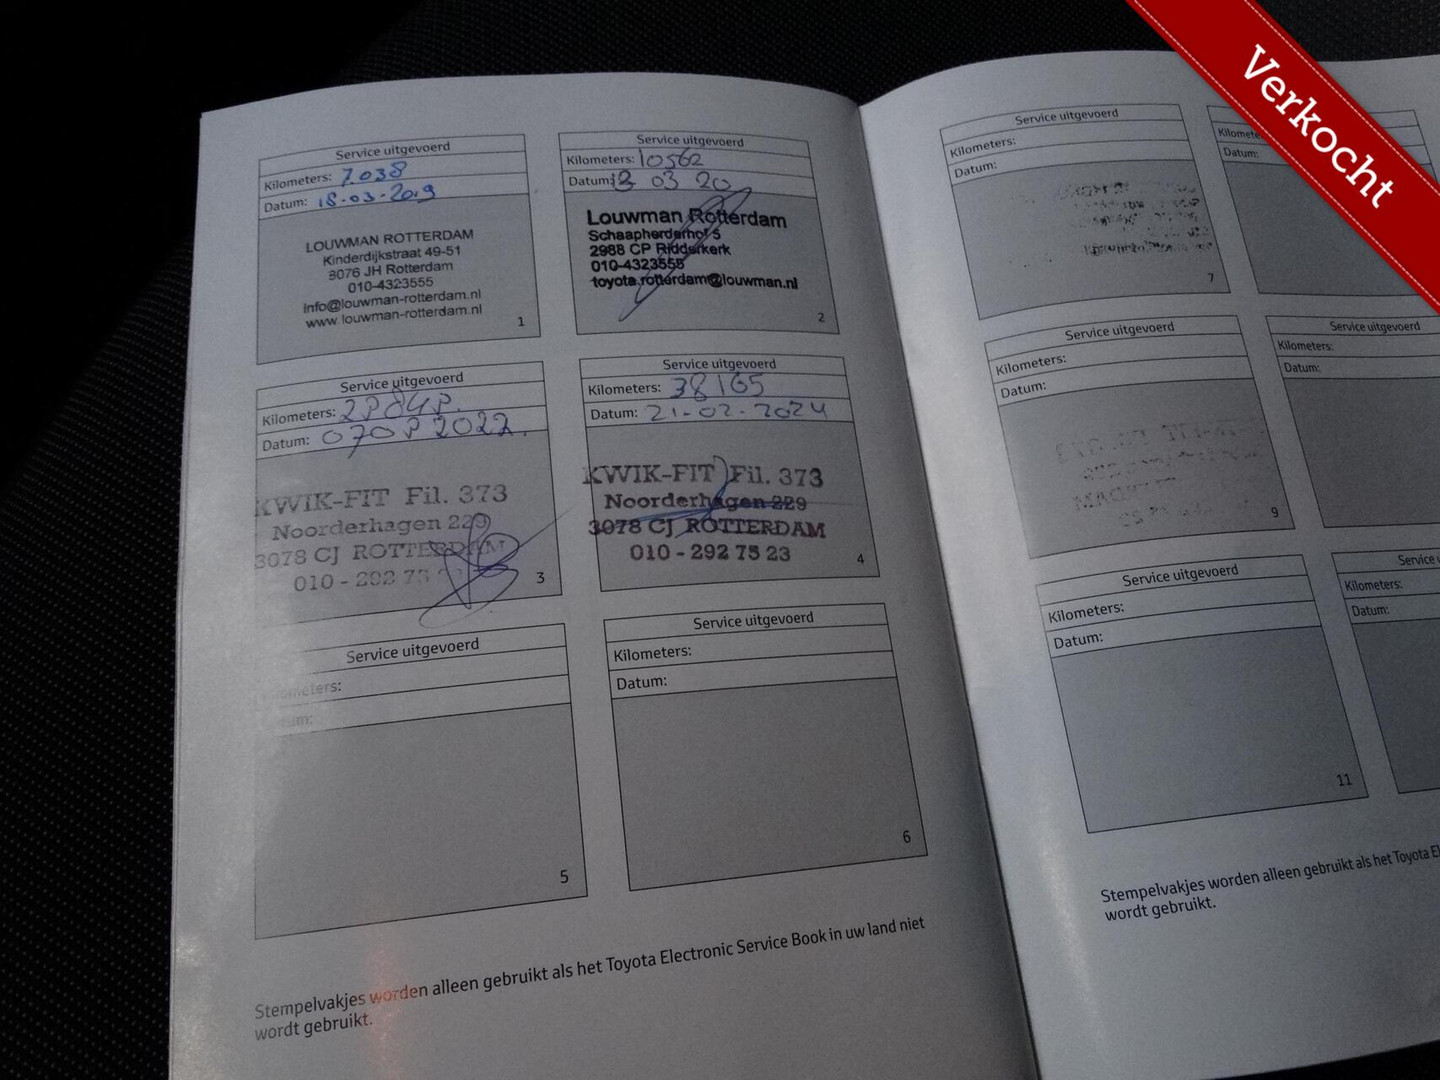 Service uitgevoerd
Kilometers: 7.038
Datum: 18-03-2019
LOUWMAN ROTTERDAM
Kinderdijkstraat 49-51
3076 JH Rotterdam
010-4323555
info@louwman-rotterdam.nl
www.louwman-rotterdam.nl
1
Service uitgevoerd
Kilometers: 10562
Datum: 03 20
Louwman Rotterdam
Schaapherderhof 5
2988 CP Ridderkerk
010-4323555
toyota.rotterdam@louwman.nl
2
Service uitgevoerd
Kilometers:
Datum: 2022.
KWIK-FIT Fil. 373
Noorderhagen 229
3078 CJ ROTTERDAM
010 - 292 75
3
Service uitgevoerd
Kilometers: 38165
Datum: 21-02-2024
KWIK-FIT Fil. 373
Noorderhagen 229
3078 CJ ROTTERDAM
010 - 292 75 23
4
Service uitgevoerd
Kilometers:
Datum:
5
Service uitgevoerd
Kilometers:
Datum:
6
Stempelvakjes worden alleen gebruikt als het Toyota Electronic Service Book in uw land niet
wordt gebruikt.
Service uitgevoerd
Kilometers:
Datum:
7
Datum:
Service uitgevoerd
Kilometers:
Datum:
9
Service uitgevoerd
Kilometers:
Datum:
Service uitgevoerd
Kilometers:
Datum:
11
Service
Kilometers:
Datum:
Stempelvakjes worden alleen gebruikt als het Toyota
wordt gebruikt.
Verkocht